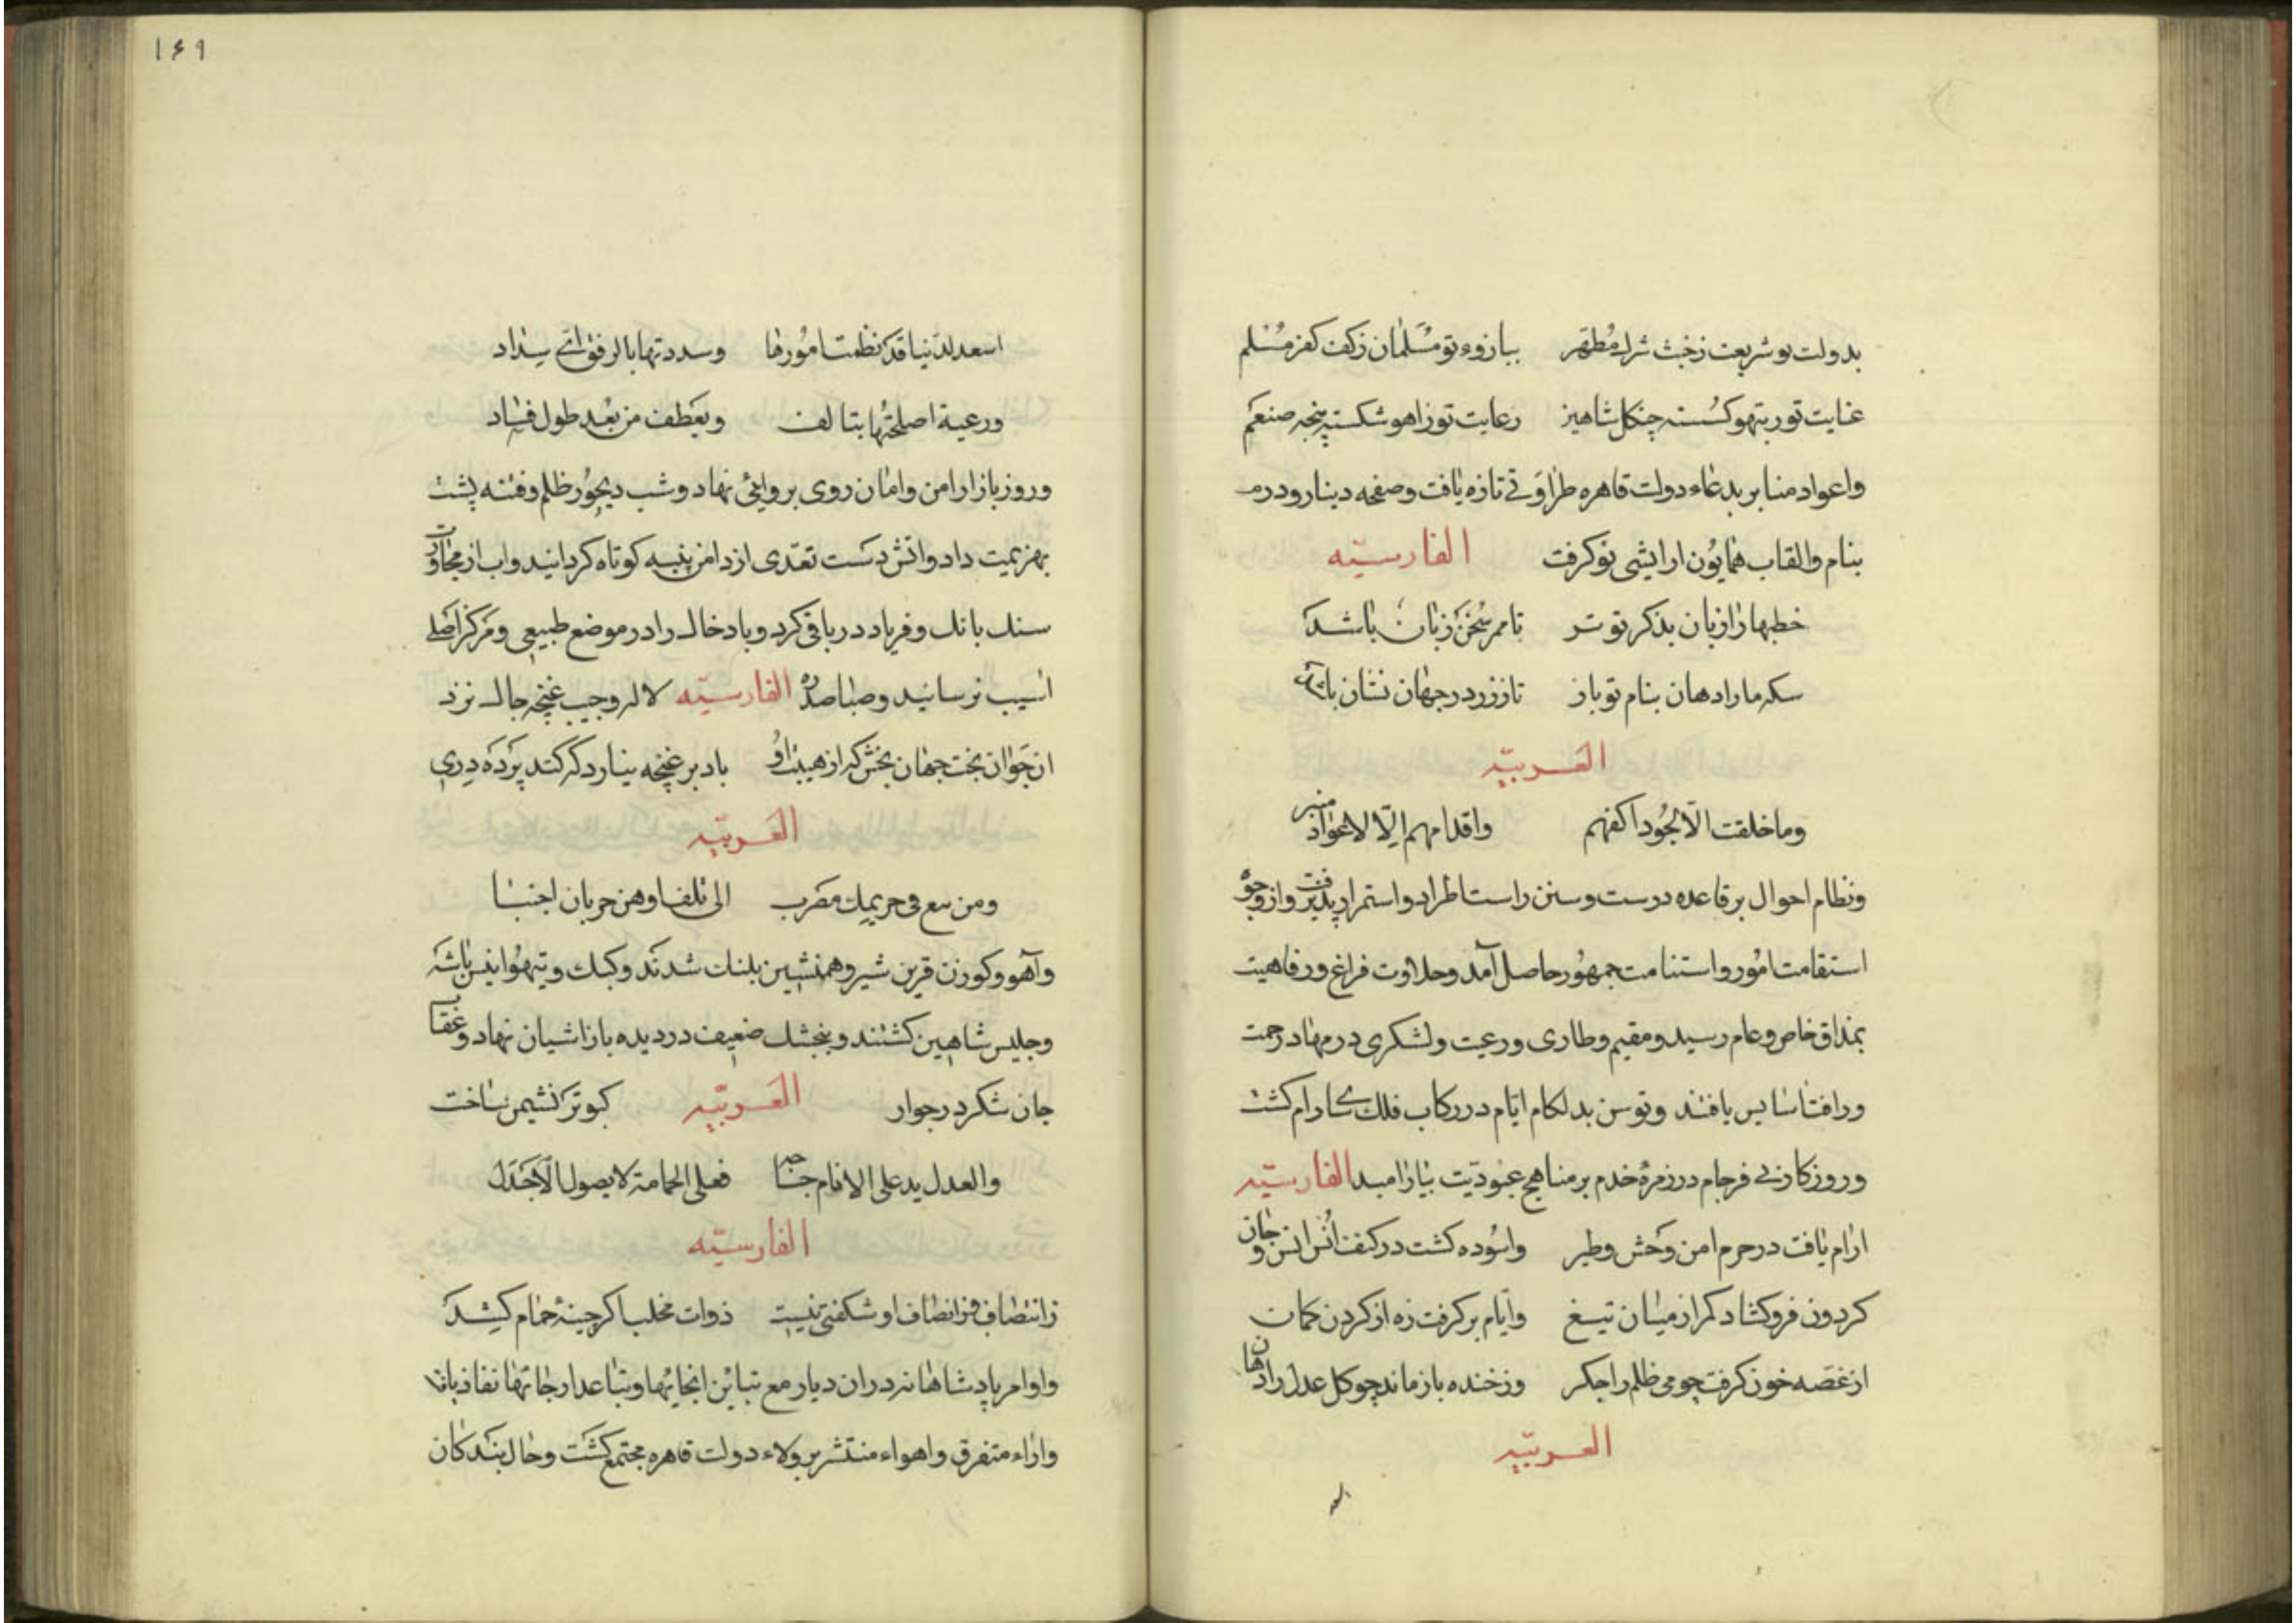 بدولت تو شریعت ز خبث شرک مطهر ببازوء تو مسلمان ز کف کفر مسلم
عنایت تو ز تیهو کسسته چنکل شاهین رعایت تو ز اهو شکسته پنجه ضیغم
واعواد منابر بدعاء دولت قاهره طراوتی تازه یافت وصفحه دینار ودرم
بنام والقاب همایون ارایشی نو کرفت الفارسیّه
خطبها را زبان بذکر تو تر تا ممر سخن زبان باشد
سکه ما را دهان بنام تو باز تا ز زر در جهان نشان باشد
العربیّه
وما خلقت الّا لجود اکفهم واقدامهم الّا لاعواد منبر
ونظام احوال بر قاعده درست وسنن راست اطراد واستمرار پذیرفت واز وجوه
استقامت امور واستنامت جمهور حاصل آمد وحلاوت فراغ ورفاهیت
بمذاق خاص وعام رسید ومقیم وطاری ورعیت ولشکری در مهاد رحمت
ورافت اسایس یافتند وتوسن بدلکام ایام در رکاب فلک سا رام کشت
وروزکار بی فرجام در زمرهٔ خدم بر مناهج عبودیّت بیارامید الفارسیّه
ارام یافت در حرم امن وحش وطیر واسوده کشت در کنف انس انس وجان
کردون فرو کشاد کمر از میان تیغ وایام بر کرفت زه از کردن کمان
از غصّه خون کرفت چو می ظلم را جکر وز خنده باز ماند چو کل عدل را دهان
العربیّه
۱۶۹
اسعد لدنیا قد نظمت امورها وسددتها بالرفق ای سداد
ورعیة اصلحتها بتالف وبعطف من بعد طول فساد
وروز بازار امن وامان روی بروایی نهاد وشب دیجور ظلم وفتنه پشت
بهزیمت داد واتش دست تعدّی از دامن پنبه کوتاه کردانید واب از مجاورت
سنک بانک وفریاد در باقی کرد وباد خاک را در موضع طبیعی ومرکز اصلی
اسیب نرسانید وصبا صدره الفارسیّه لاله وجیب غنچه چاک نزد
ان جوان بخت جهان بخش که از هیبت او باد بر غنچه نیارد که کند پرده دری
العربیّه
الی تلف
وآهو وکوزن قرین شیر وهمنشین پلنک شدند وکبک وتیهو انیس باشه
وجلیس شاهین کشتند وبنجشک ضعیف در دیده باز اشیان نهاد وعقاب
جان شکر در جوار العربیّه کبوتر نشیمن ساخت
والعدل ید علی الانام جناحه فعلی الحمامة لا یصول الاجدل
الفارسیّه
ز انتصاف انصاف او شکفتی نیست ذوات مخلب اکر چینهٔ حمام کشد
واوامر پادشاهانه در ان دیار مع تباین انحایها وتباعد ارجائها نفاذ یافت
واراء متفرق واهواء منتشر بر ولاء دولت قاهره مجتمع کشت وحال بندکان